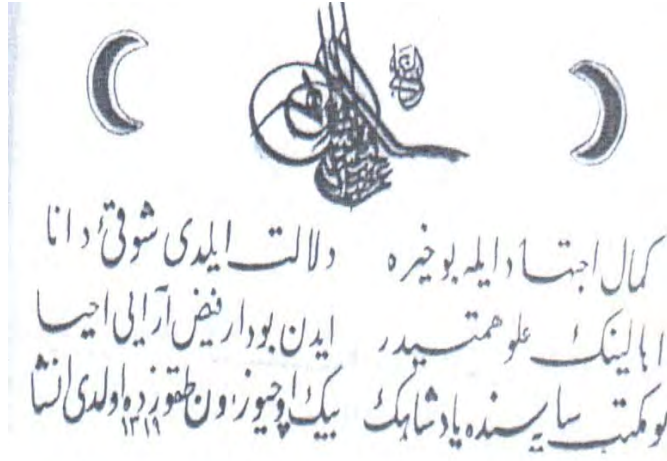 كمال اجتهاد ايله بو خيره دلالت ايلدى شوقئ دانا
اهالينك علو همتيدر ايدن بو دار فيض آرايى احيا
بو مكتب سايه سنده پادشاهك بيك اوچيوز اون طقوزده اولدى انشا
١٣١٩